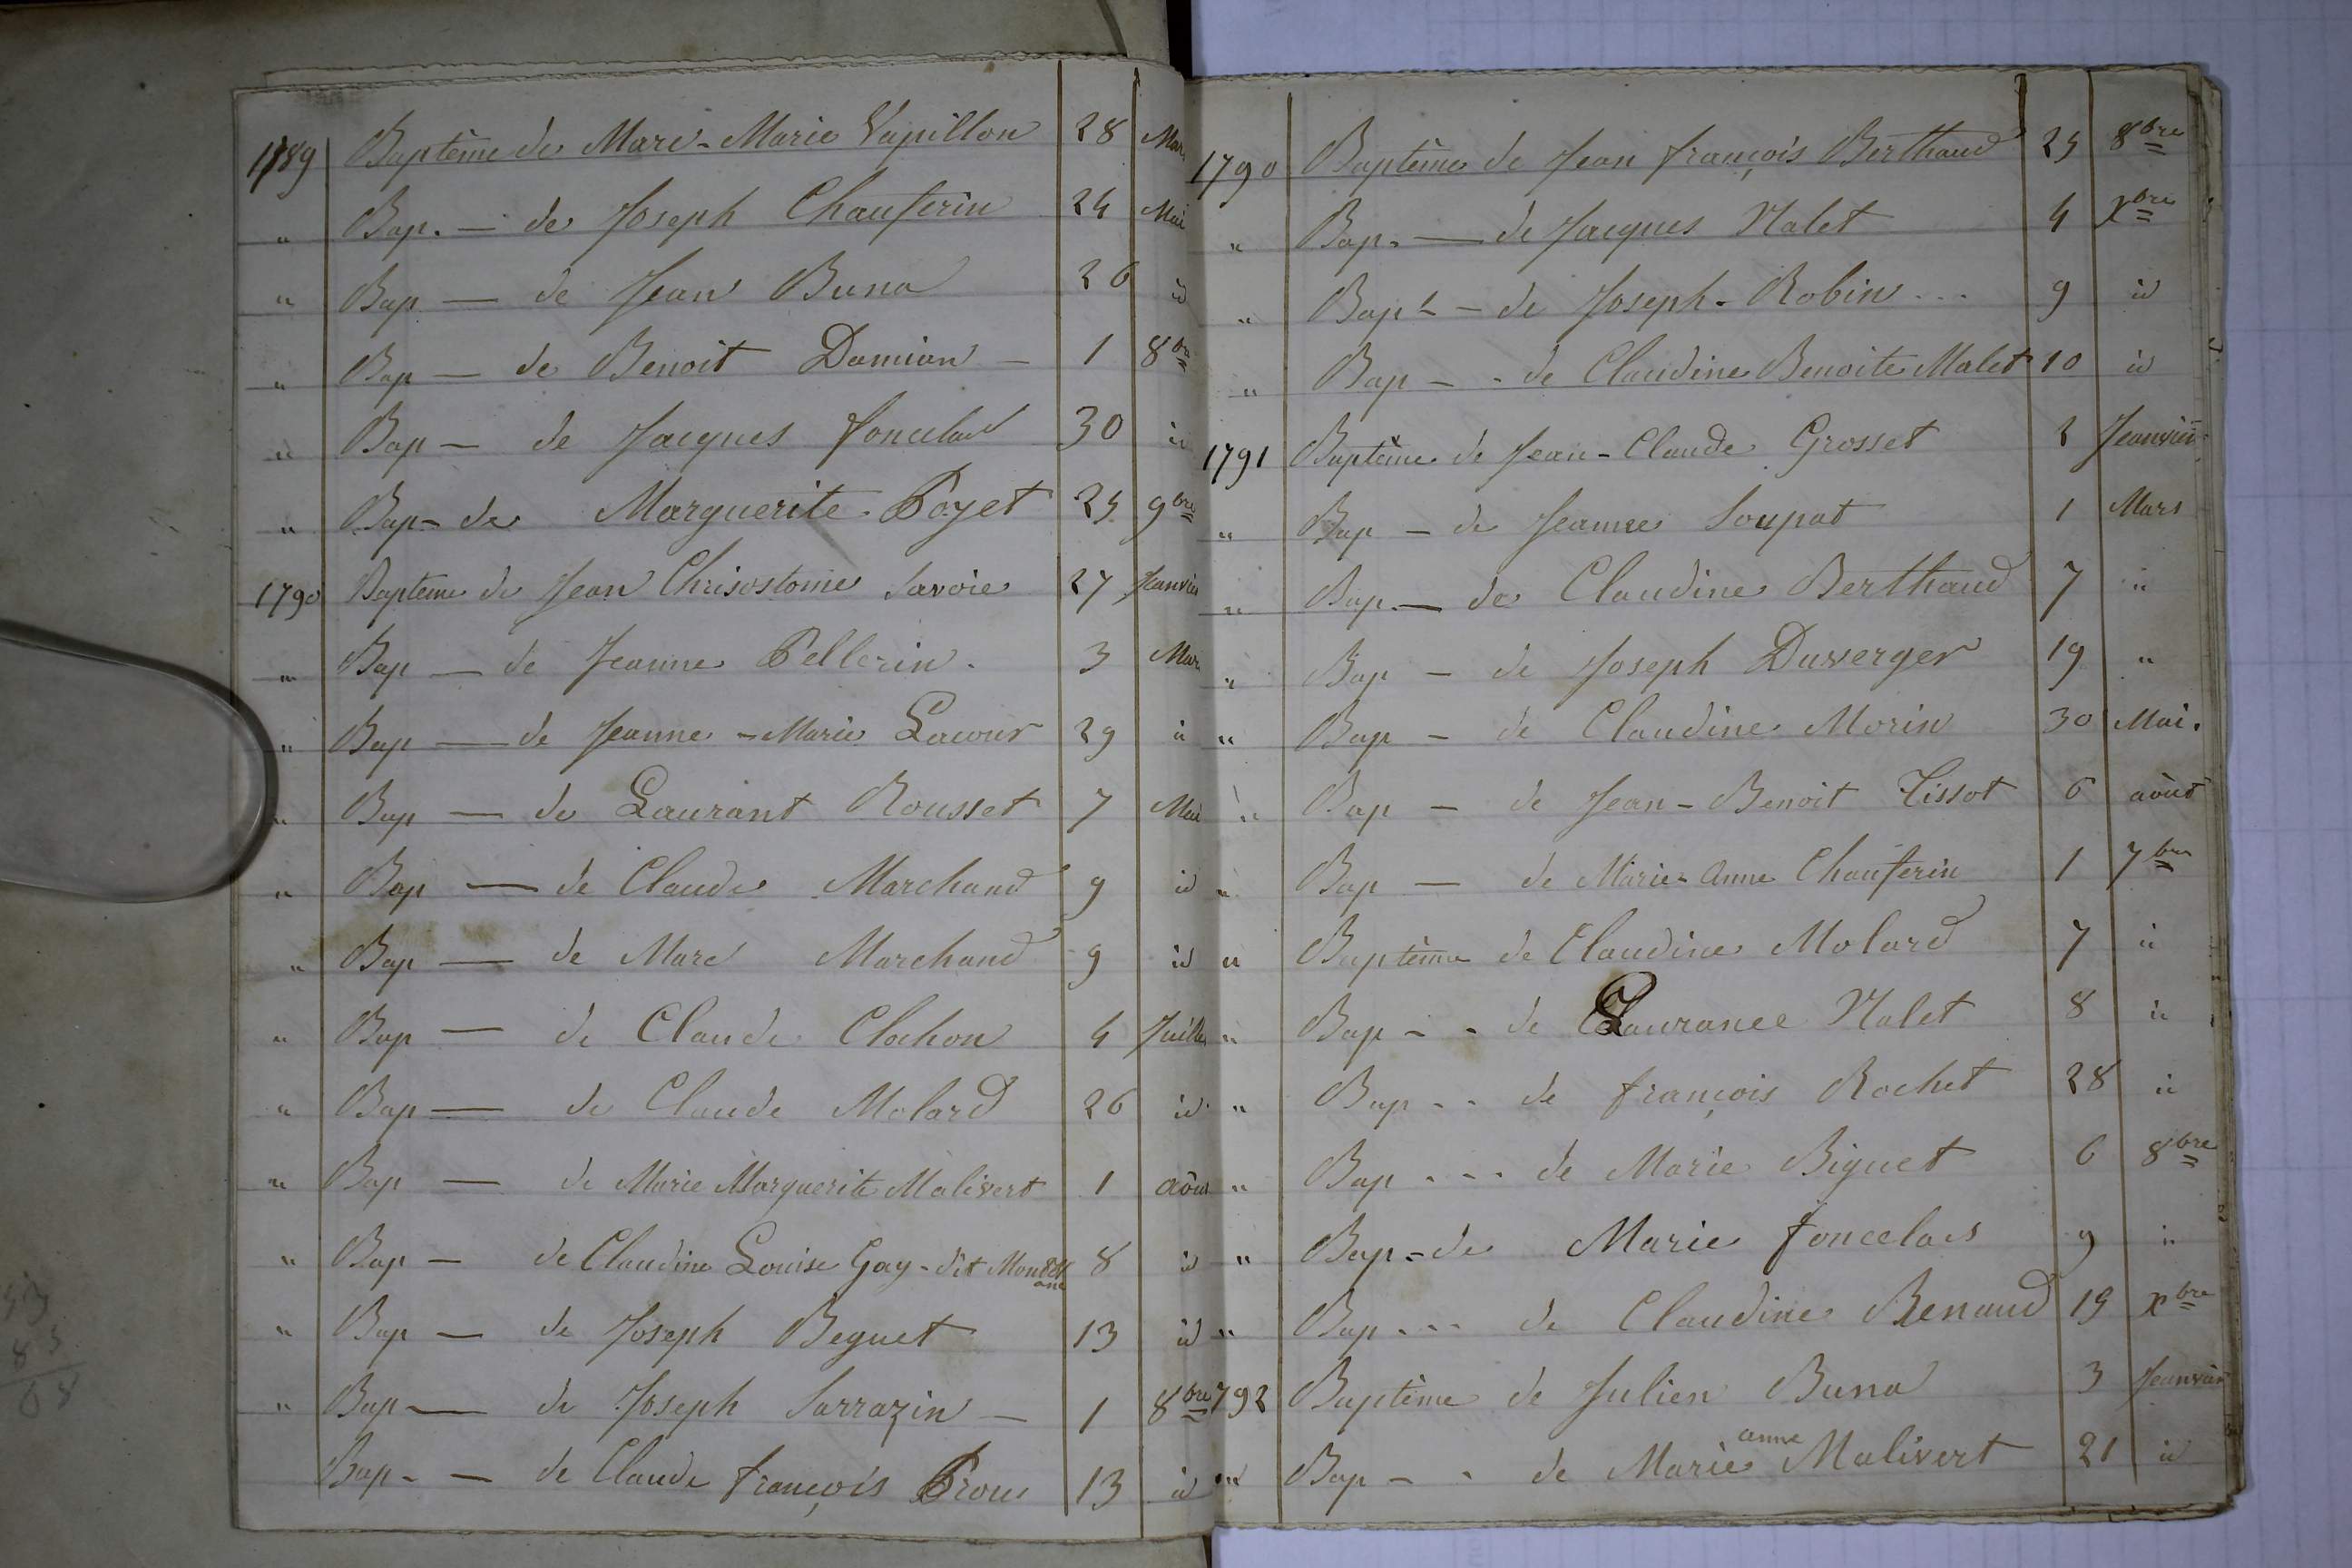 1789 Baptême de Marc-Marie Papillon 28 Mar
" Bap. — de Joseph Chauferin 24 Mai
" Bap — de Jean Buna 26 id
" Bap — de Benoit Damian — 1 8bre
" Bap — de Jacques foncelas 30 id
" Bap - de Marguerite Poyet 25 9bre
1790 Baptême de Jean Chrisostome Savoie 27 Janvier
" Bap — de Jeanne Pellerin. 3 Mar
" Bap — de Jeanne - Marie Lacour 29 id
" Bap — de Laurant Rousset 7 Mai
" Bap — de Claude Marchand 9 id
" Bap — de Marc Marchand 9 id
" Bap — de Claude Clochon 4 Juillet
" Bap — de Claude Molard 26 id
" Bap — de Marie Marguerite Malivert 1 août
" Bap — de Claudine Louise Gay - dit 8 id
" Bap — de Joseph Beguet 13 id
" Bap — de Joseph Sarrazin — 1 8bre
Bap - — de Claude françois Prou 13 id
1790 Baptême de Jean françois Berthaud 25 8bre
" Bap. — de Jacques Nalet 4 Xbre
" Bapt — de Joseph - Robin ... 9 id
" Bap - - de Claudine Benoite Malet 10 id
1791 Baptême de Jean - Claude Grosset 2 Jeanvier
" Bap — de Jeanne Soupat 1 Mars
" Bap. — de Claudine Berthaud 7 id
" Bap — de Joseph Duverger 19 "
" Bap — de Claudine Morin 30 Mai.
" Bap — de Jean - Benoit Tissot 6 août
" Bap — de Marie - Anne Chauferin 1 7bre
" Baptême de Claudine Molard 7 id
" Bap - - de Laurance Nalet 8 id
" Bap - - de françois Rochet 28 id
" Bap - - - de Marie Biguet 6 8bre
" Bap - de Marie foncelas 9 id
" Bap - - - de Claudine Renaud 19 Xbre
792 Baptême de Julien Buna 3 Jeanvier
" Bap - - de Marie anne Malivert 21 id